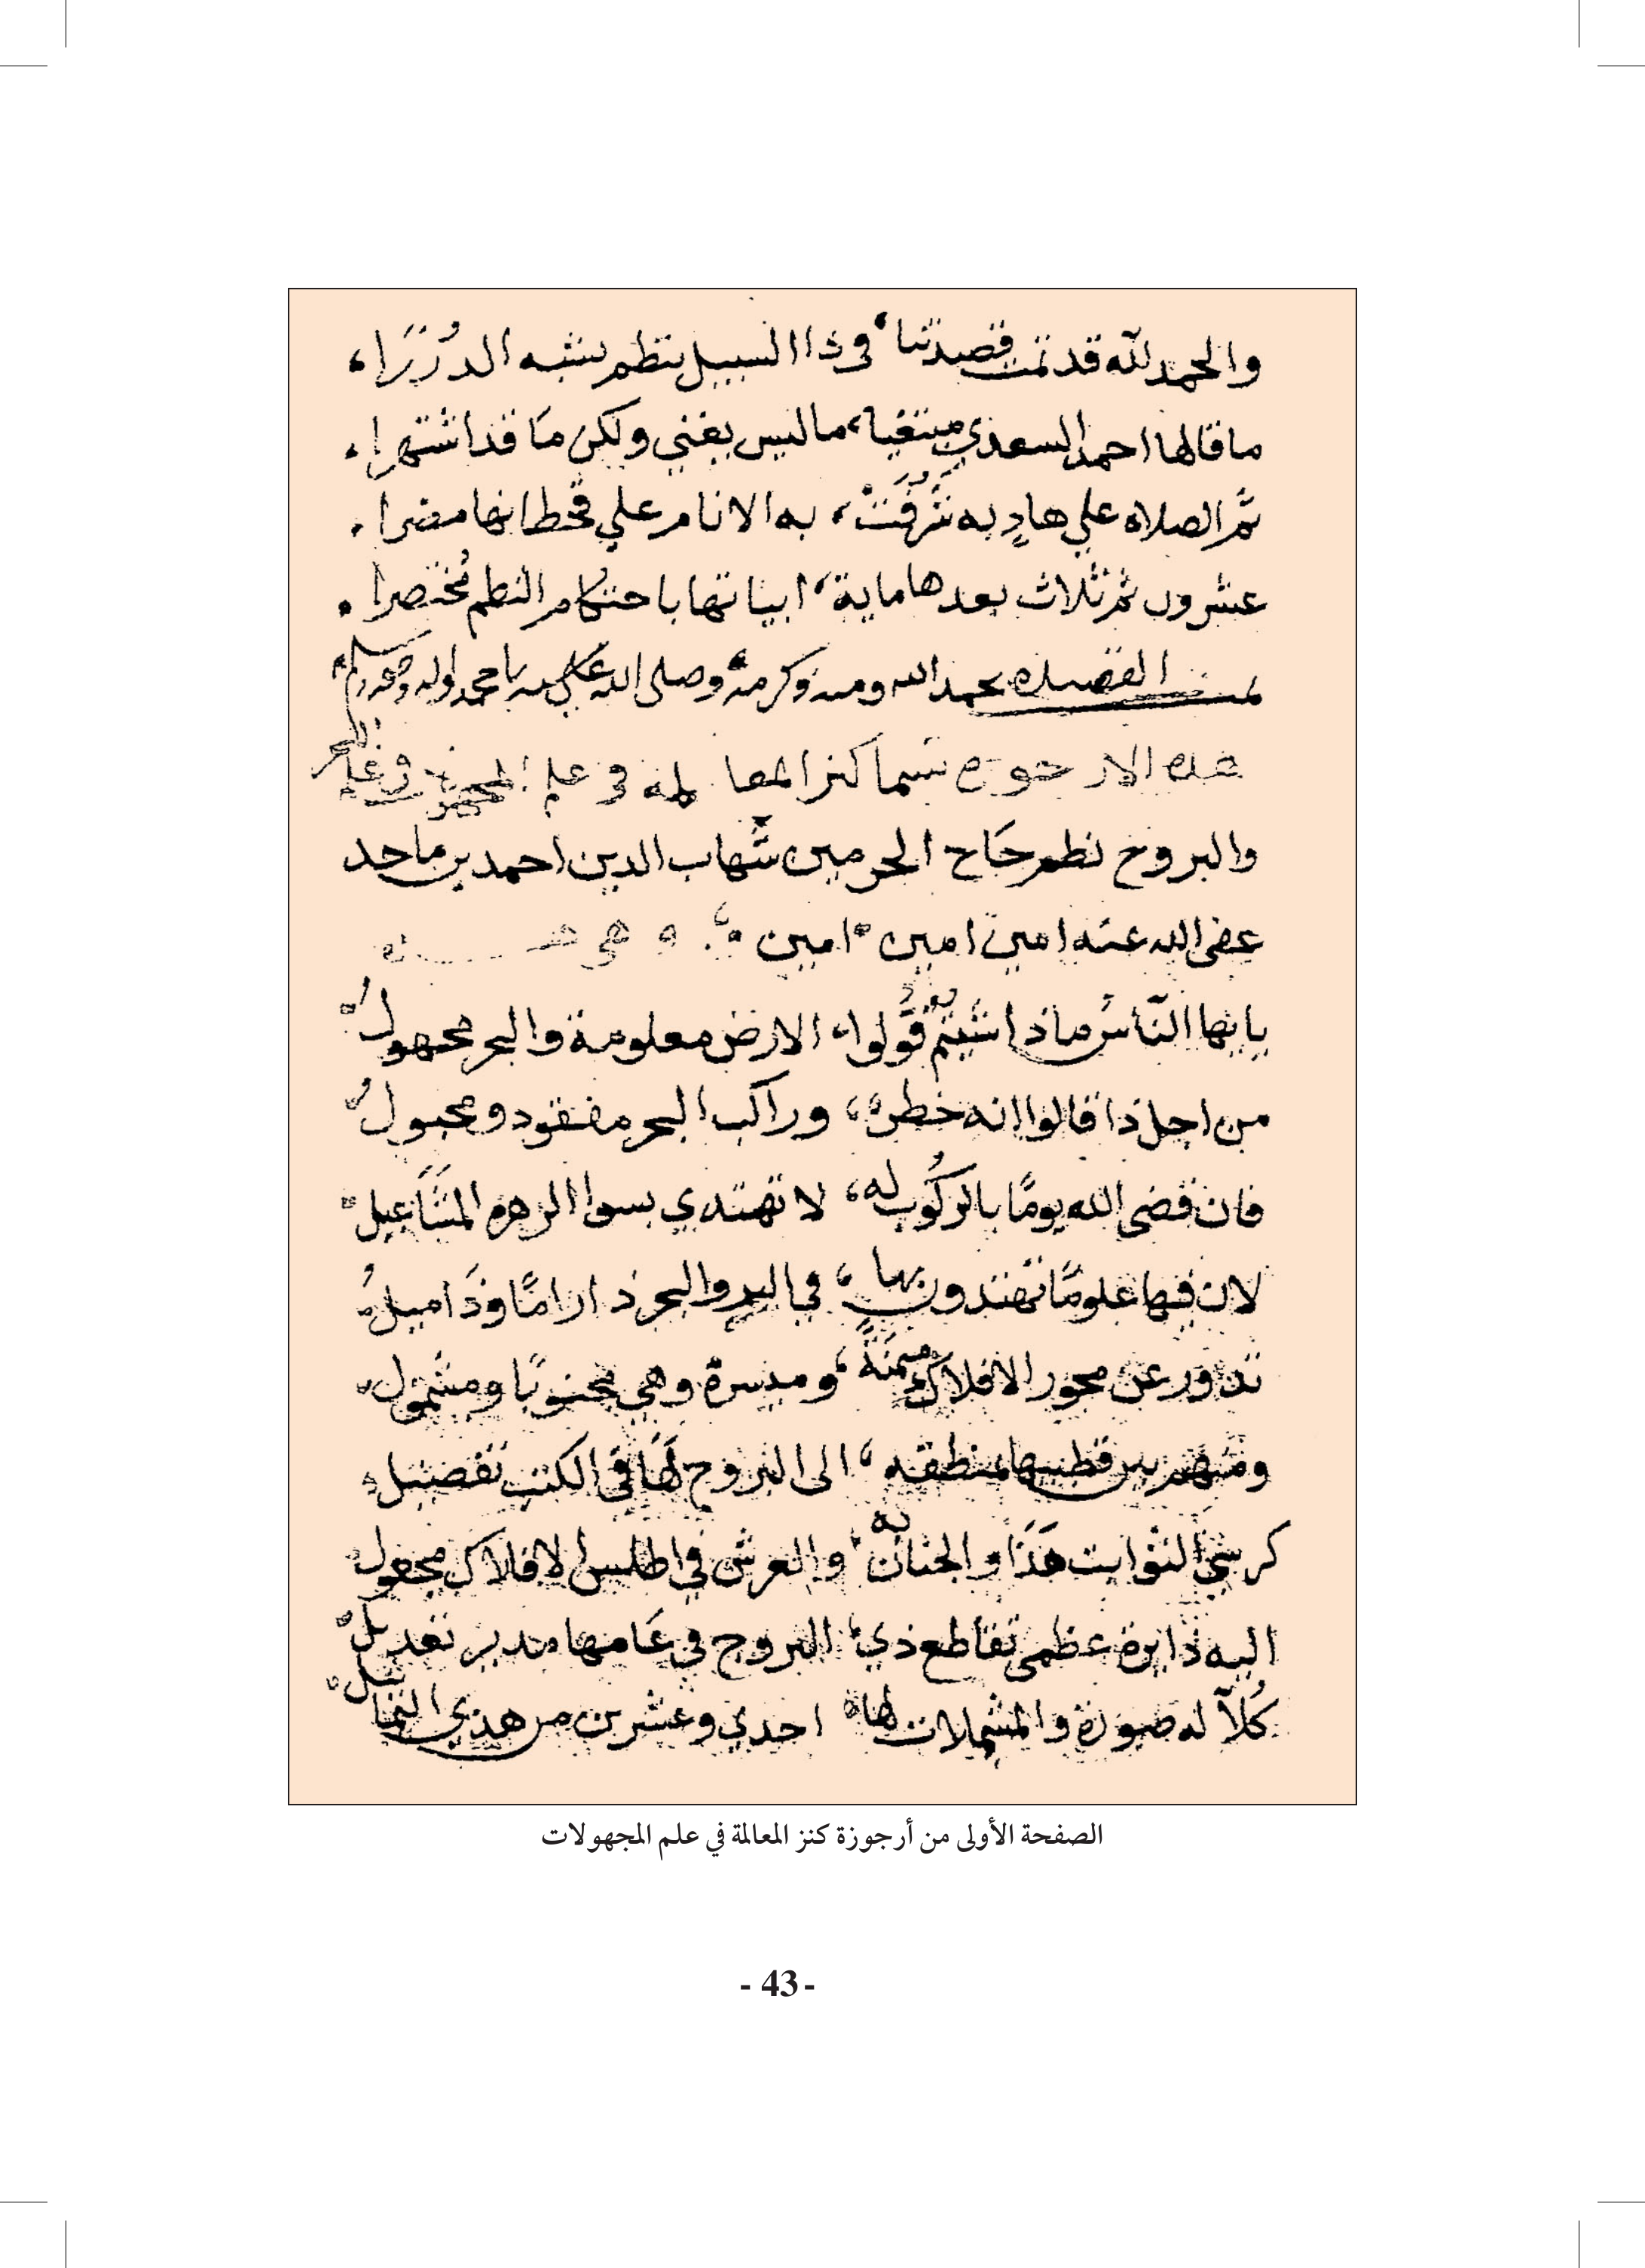 والحمد لله قد تمت قصيدتنا، في ذا السبيل بنظم يشبه الدُرَرَا،
ما قالها احمد السعدي مبتغيا، ما ليس يغني ولكن مَا قد اشتهرا،
ثمَّ الصلاه علي هادٍ به شَرُفَتْ، به الانام علي قحطانها مضرا.
عشرون ثم ثلاث بعدها ماية، ابياتها باحتكام النظم مُختصرا.
تمت القصيده بحمد الله ومنه وكرمه وصلى الله على محمد واله وصحبه وسلم
هذه الارجوزه تسما كنز المعالمه في علم المجهولات في علم البحر
والبروج نظم حَاج الحرمين شهاب الدين احمد بن ماجد
عفى الله عنه امين امين امين وهي هذه
يايها النّاسُ ماذا شيتم قُولوا، الارض معلومة والبحر مجهولُ
من اجل ذا قالوا انه خطر، وراكب البحر مفقود ومحبولُ
فان قضى الله يومًا بالركُوب له، لا تهتدي بسوا الزهر المشَاعيل
لان فيها علومًا تهتدون بها، في البر والبحر ذا رامًا وذَا ميلُ
تداور عن محور الافلاك ميمنةً، وميسرة وهي مجنوبًا ومشمول
ومنهم بين قطبيها منطقه، الى البروج لهَا في الكتب تفصيل
كرسيّ الثوابت هَذَا والجنان به، والعرش في اطلس الافلاك مجعول
اليه دايرة عظمى تقاطع ذي، البروج في عَامها من بر تعديل
كُلاً له صورة والمشملات لها احدي وعشرين من هذي التماثيل
الصفحة الأولى من أرجوزة كنز المعالمة في علم المجهولات
- 43 -